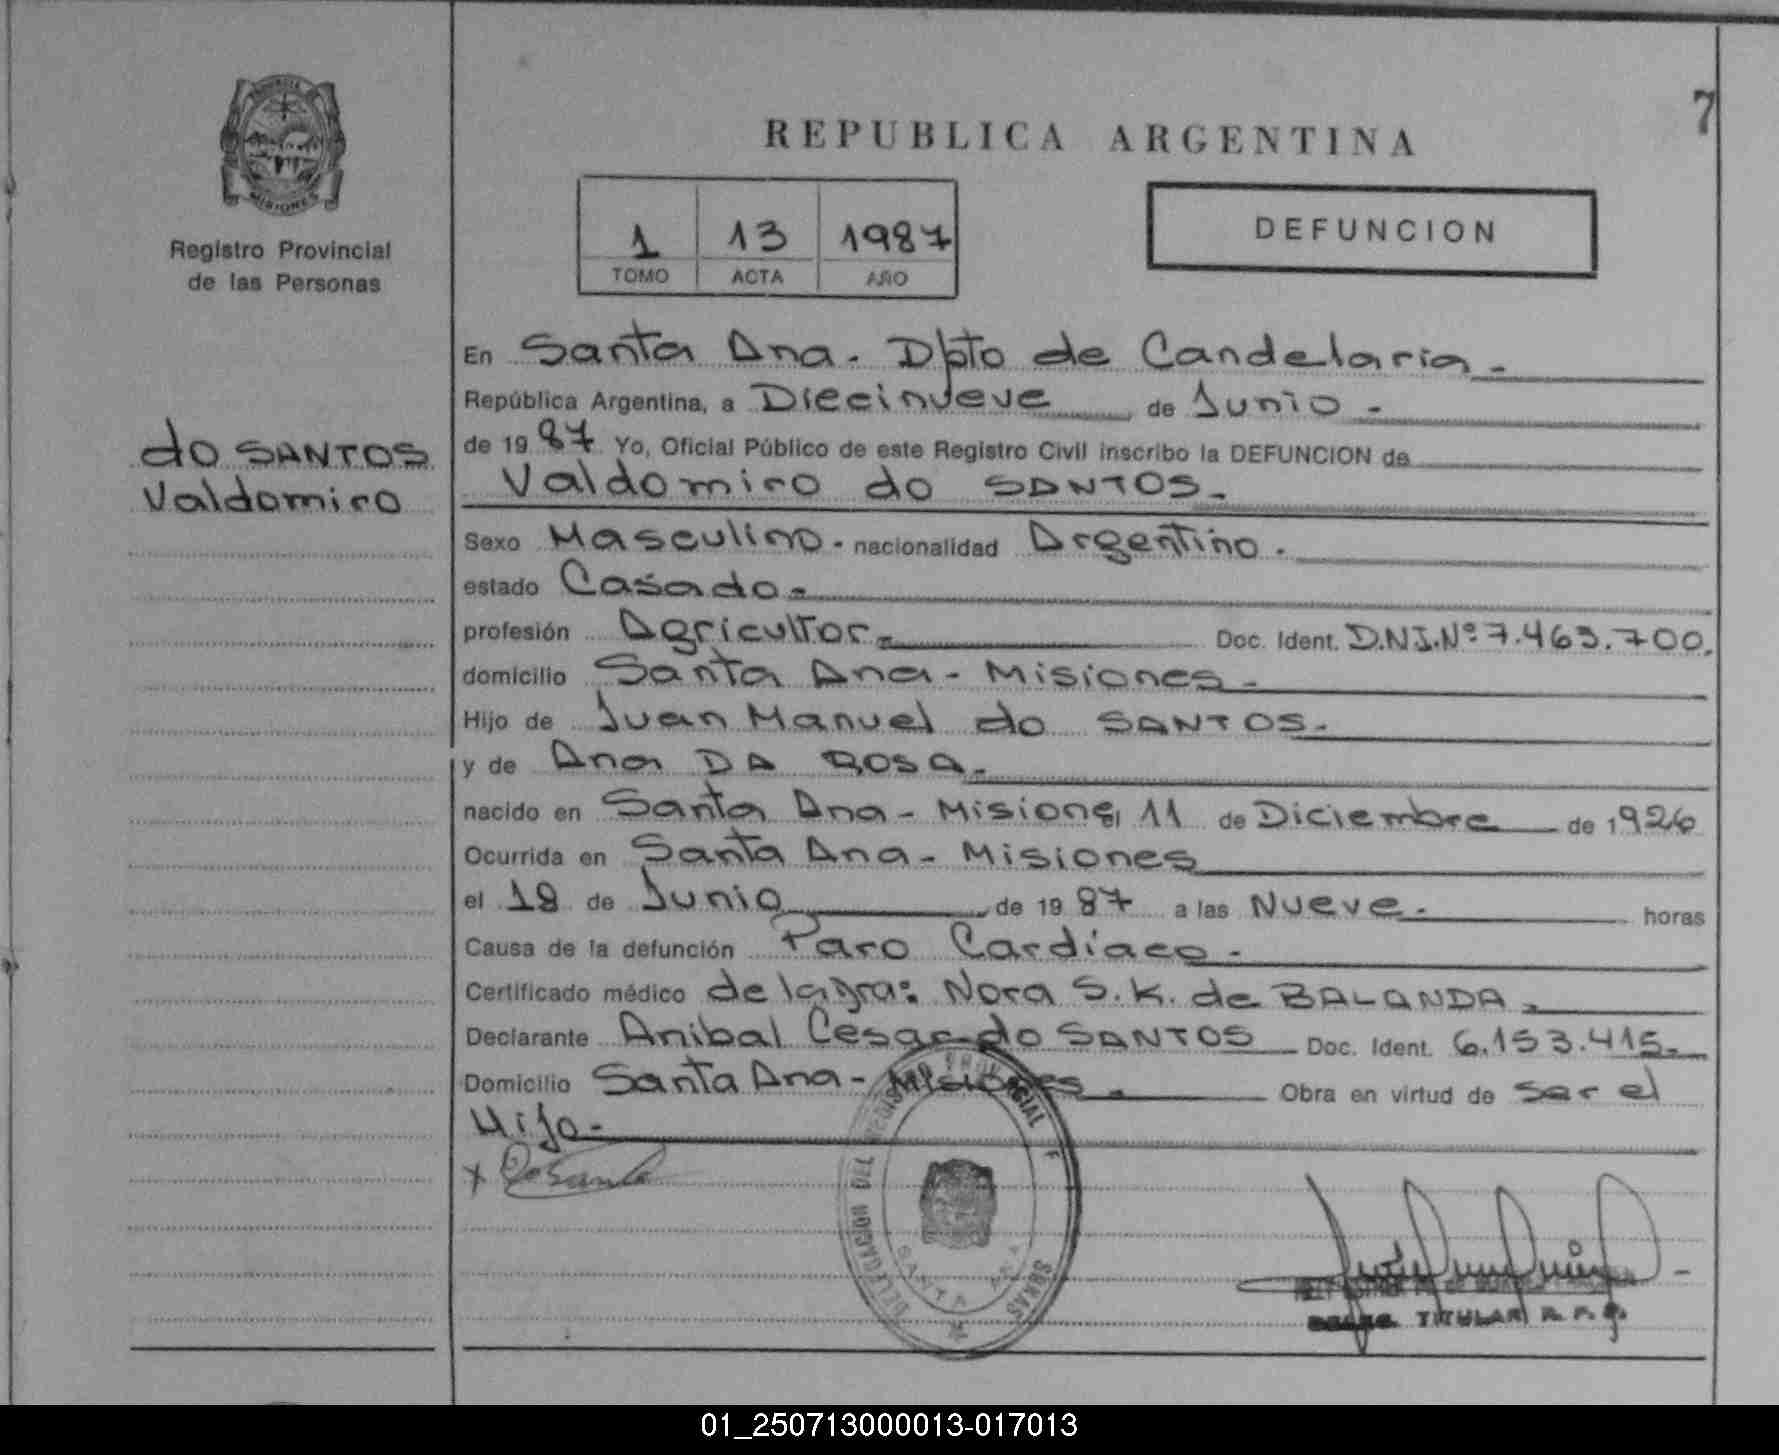 7
REPUBLICA ARGENTINA
MISIONES
Registro Provincial
de las Personas
1 13 1987
TOMO ACTA AÑO
DEFUNCION
do SANTOS
Valdomiro
En Santa Ana. Dpto de Candelaria.
República Argentina, a Diecinueve de Junio.
de 1987 Yo, Oficial Público de este Registro Civil inscribo la DEFUNCION de
Valdomiro do SANTOS.
Sexo Masculino. nacionalidad Argentino.
estado Casado.
profesión Agricultor. Doc. Ident. D.N.I.Nº 7.463.700.
domicilio Santa Ana - Misiones.
Hijo de Juan Manuel do SANTOS.
y de Ana DA ROSA.
nacido en Santa Ana - Misiones, 11 de Diciembre de 1926
Ocurrida en Santa Ana - Misiones
el 18 de Junio de 1987 a las Nueve. horas
Causa de la defunción Paro Cardíaco.
Certificado médico de la Dra: Nora S. K. de BALANDA.
Declarante Anibal Cesar do SANTOS Doc. Ident. 6.153.415.
Domicilio Santa Ana - Misiones. Obra en virtud de ser el
Hijo.
x DoSanto
DELEGACION DEL REGISTRO PROVINCIAL
SANTA ANA
TITULAR R. P. P.
01_250713000013-017013